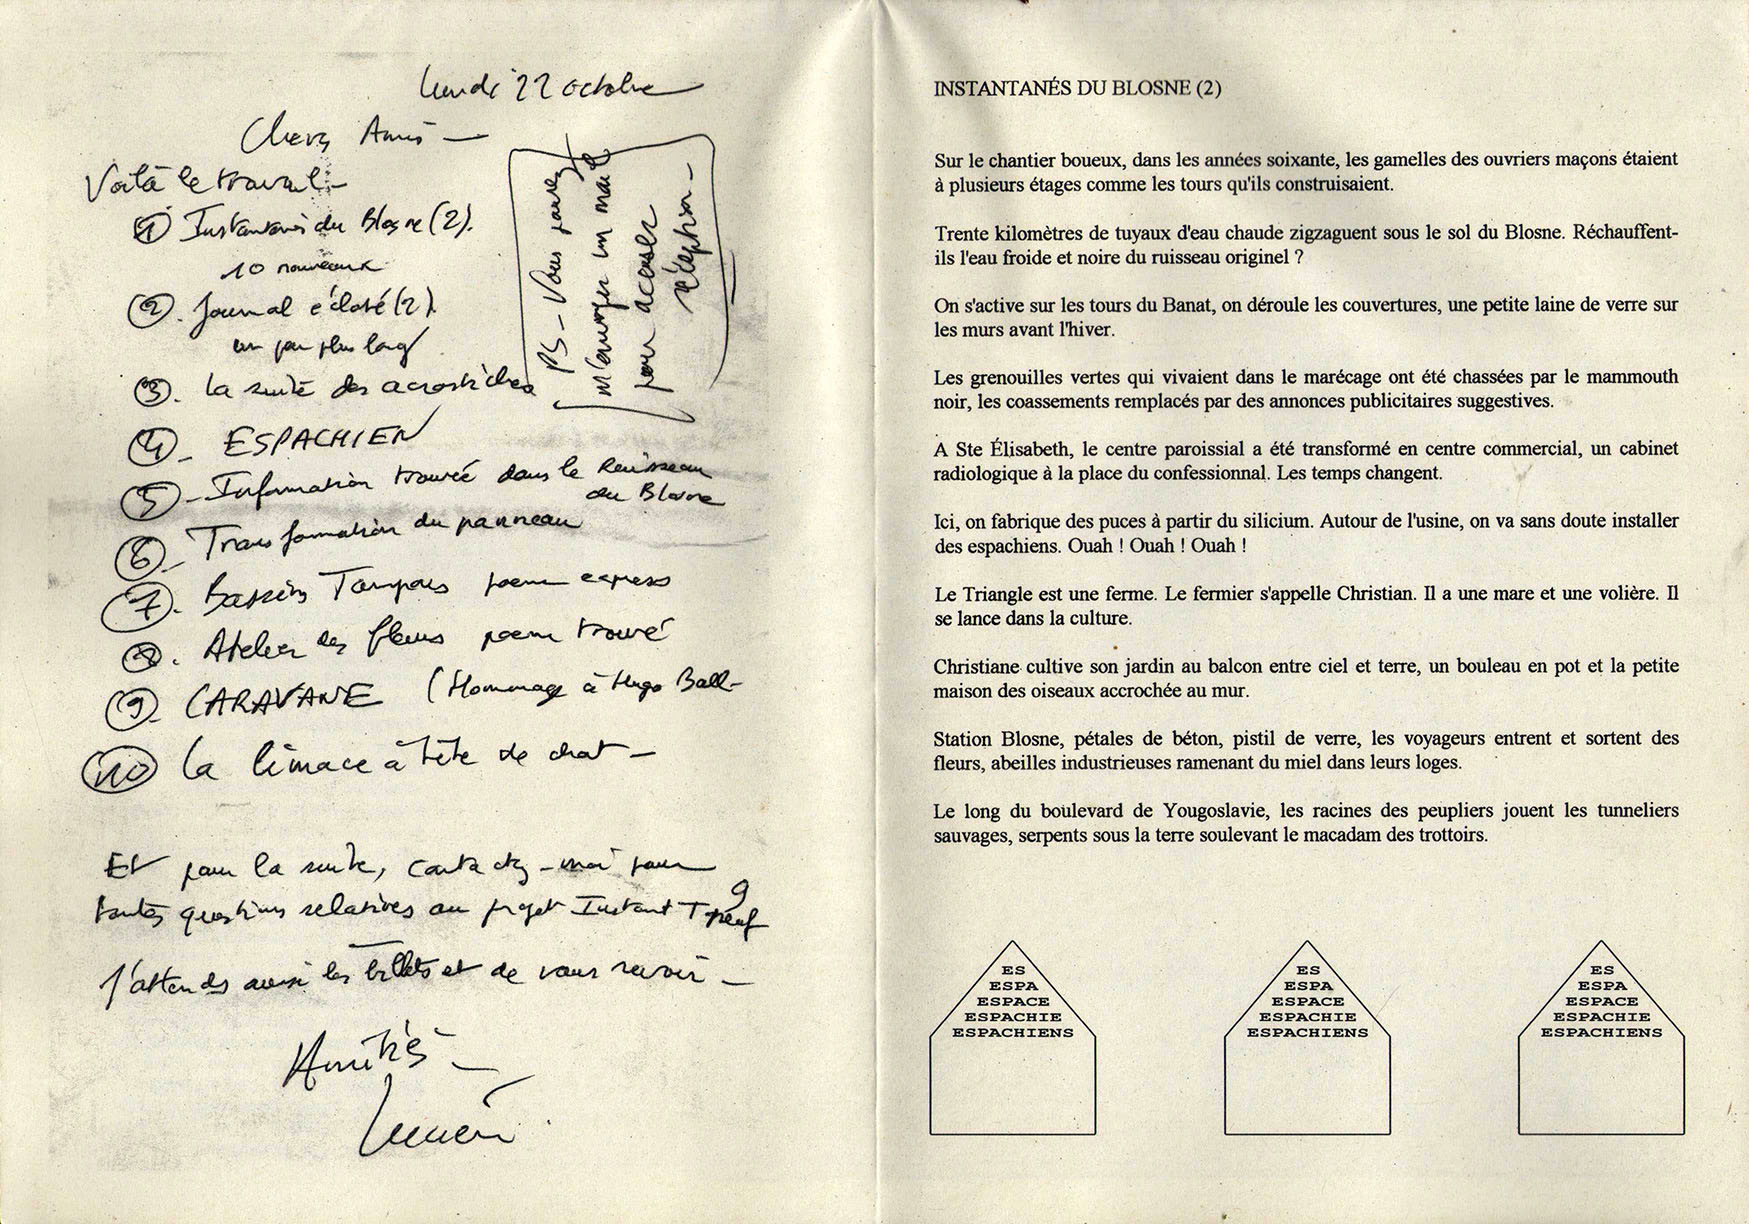 lundi 22 octobre
Chers Amis –
Voilà le travail –
① Instantanés du Blosne (2).
10 nouveaux
②. Journal éclaté (2).
un peu plus long
③. La suite des acrostiches
④ – ESPACHIEN
⑤ – Information trouvée dans le Ruisseau
du Blosne
⑥ – Transformation du panneau
⑦. Bassins Tampons poème express
⑧. Atelier des fleurs poème trouvé
⑨ – CARAVANE (Hommage à Hugo Ball –
⑩ La limace à tête de chat –
PS – Vous pouvez
m'envoyer un mail
pour accuser
réception –
Et pour la suite, contactez-moi pour
toutes questions relatives au projet Instant T 9
neuf
J'attends aussi les billets et de vous revoir –
Amitiés –
INSTANTANÉS DU BLOSNE (2)
Sur le chantier boueux, dans les années soixante, les gamelles des ouvriers maçons étaient
à plusieurs étages comme les tours qu'ils construisaient.
Trente kilomètres de tuyaux d'eau chaude zigzaguent sous le sol du Blosne. Réchauffent-
ils l'eau froide et noire du ruisseau originel ?
On s'active sur les tours du Banat, on déroule les couvertures, une petite laine de verre sur
les murs avant l'hiver.
Les grenouilles vertes qui vivaient dans le marécage ont été chassées par le mammouth
noir, les coassements remplacés par des annonces publicitaires suggestives.
A Ste Élisabeth, le centre paroissial a été transformé en centre commercial, un cabinet
radiologique à la place du confessionnal. Les temps changent.
Ici, on fabrique des puces à partir du silicium. Autour de l'usine, on va sans doute installer
des espachiens. Ouah ! Ouah ! Ouah !
Le Triangle est une ferme. Le fermier s'appelle Christian. Il a une mare et une volière. Il
se lance dans la culture.
Christiane cultive son jardin au balcon entre ciel et terre, un bouleau en pot et la petite
maison des oiseaux accrochée au mur.
Station Blosne, pétales de béton, pistil de verre, les voyageurs entrent et sortent des
fleurs, abeilles industrieuses ramenant du miel dans leurs loges.
Le long du boulevard de Yougoslavie, les racines des peupliers jouent les tunneliers
sauvages, serpents sous la terre soulevant le macadam des trottoirs.
ES
ESPA
ESPACE
ESPACHIE
ESPACHIENS
ES
ESPA
ESPACE
ESPACHIE
ESPACHIENS
ES
ESPA
ESPACE
ESPACHIE
ESPACHIENS